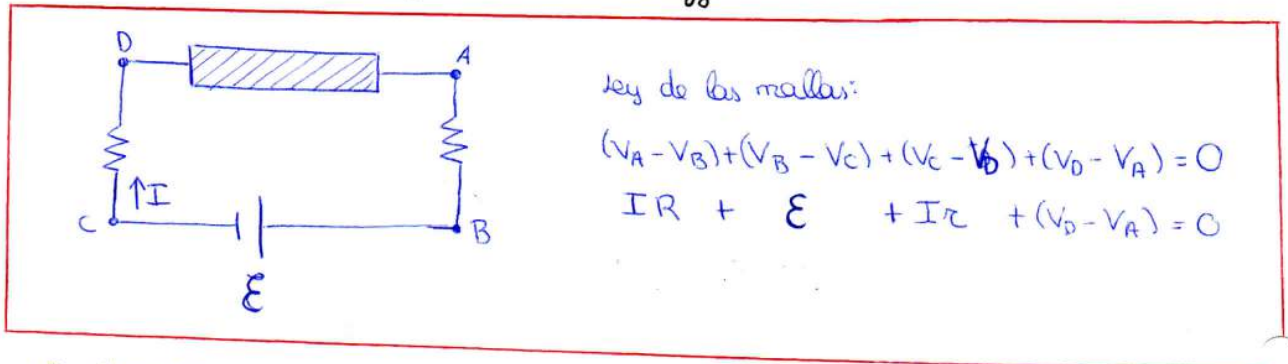 D
A
↑I
C
B
ε
Ley de las mallas:
(V_A - V_B) + (V_B - V_C) + (V_C - V_D) + (V_D - V_A) = 0
IR + ε + Ir + (V_D - V_A) = 0